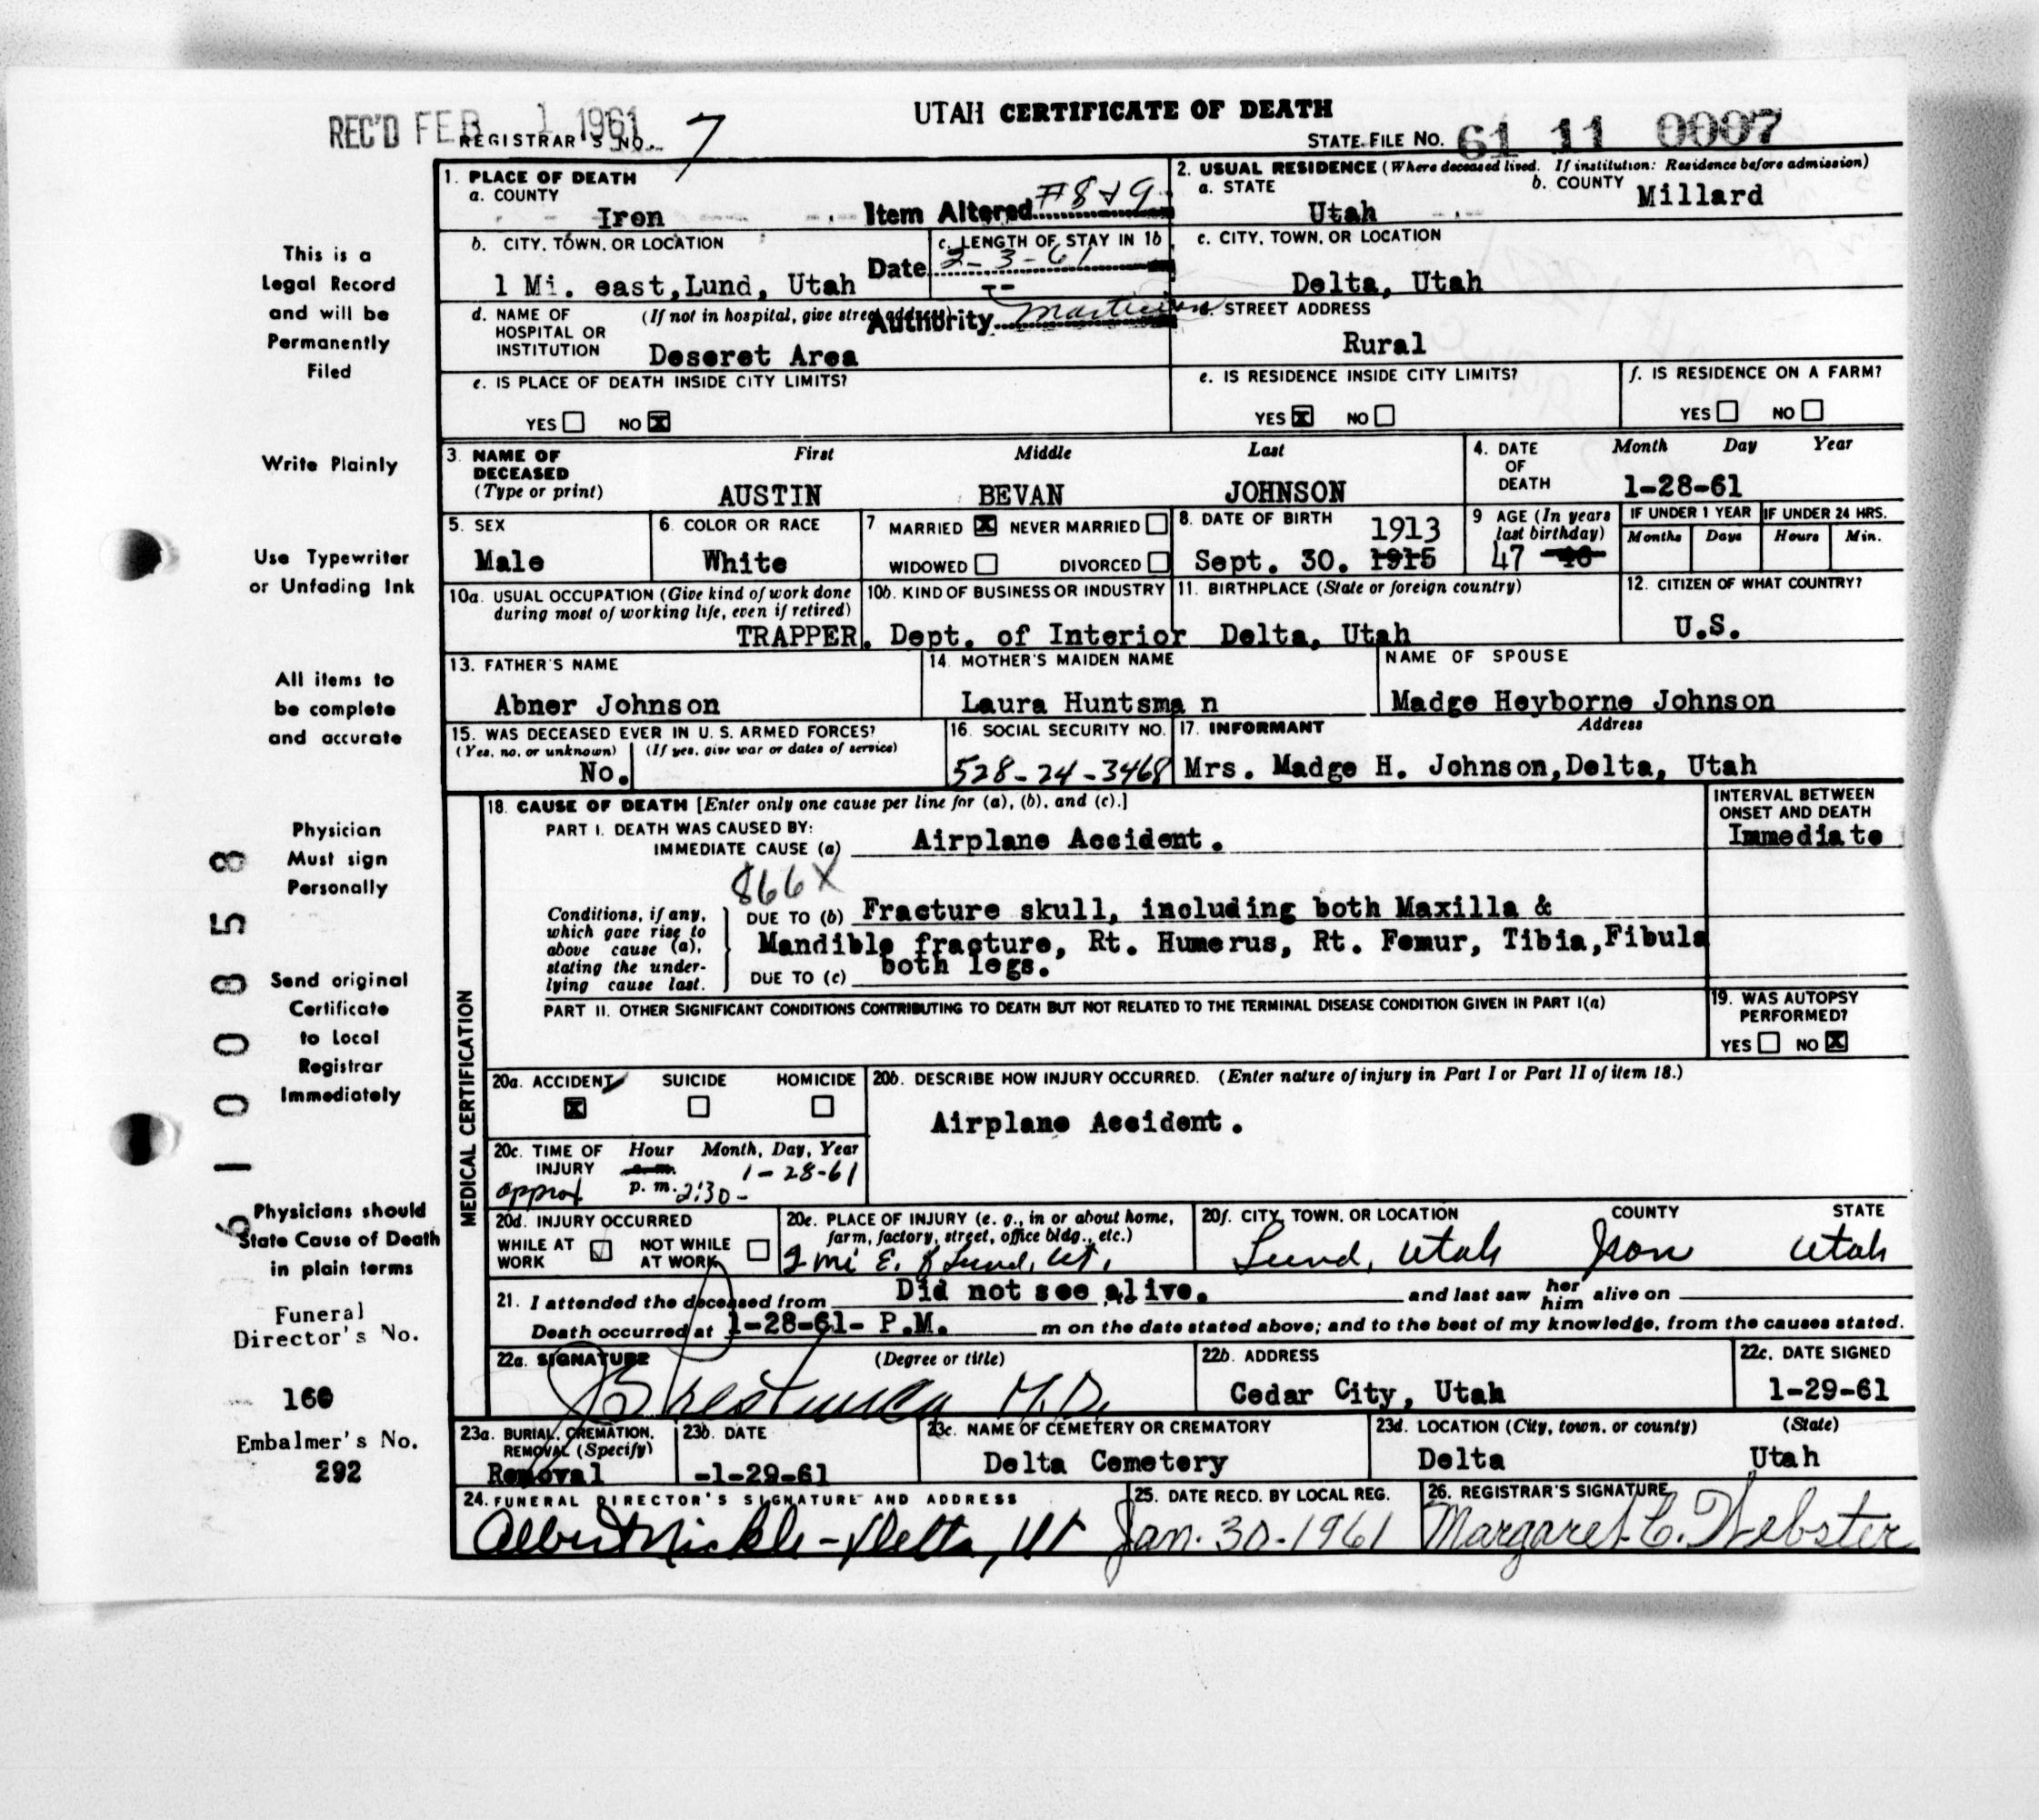 UTAH CERTIFICATE OF DEATH
REC'D FEB 1 1961
REGISTRAR'S NO. 7
STATE FILE NO. 61 11 0007
1. PLACE OF DEATH
a. COUNTY
Iron
Item Altered #8 & 9
2. USUAL RESIDENCE (Where deceased lived. If institution: Residence before admission)
a. STATE
Utah
b. COUNTY Millard
b. CITY, TOWN, OR LOCATION
1 Mi. east,Lund, Utah
c. LENGTH OF STAY IN 1b
Date 2-3-61
--
c. CITY, TOWN, OR LOCATION
Delta, Utah
d. NAME OF HOSPITAL OR INSTITUTION
(If not in hospital, give street address)
Deseret Area
Authority
d. STREET ADDRESS
Rural
e. IS PLACE OF DEATH INSIDE CITY LIMITS?
YES NO X
e. IS RESIDENCE INSIDE CITY LIMITS?
YES X NO
f. IS RESIDENCE ON A FARM?
YES NO
3. NAME OF DECEASED
(Type or print)
First Middle Last
AUSTIN BEVAN JOHNSON
4. DATE OF DEATH
Month Day Year
1-28-61
5. SEX
Male
6. COLOR OR RACE
White
7 MARRIED X NEVER MARRIED
WIDOWED DIVORCED
8. DATE OF BIRTH
1913
Sept. 30. 1915
9 AGE (In years last birthday)
47
IF UNDER 1 YEAR
Months Days
IF UNDER 24 HRS.
Hours Min.
10a. USUAL OCCUPATION (Give kind of work done during most of working life, even if retired)
TRAPPER.
10b. KIND OF BUSINESS OR INDUSTRY
Dept. of Interior
11. BIRTHPLACE (State or foreign country)
Delta, Utah
12. CITIZEN OF WHAT COUNTRY?
U.S.
13. FATHER'S NAME
Abner Johnson
14. MOTHER'S MAIDEN NAME
Laura Huntsma n
NAME OF SPOUSE
Madge Heyborne Johnson
15. WAS DECEASED EVER IN U. S. ARMED FORCES?
(Yes, no, or unknown) (If yes, give war or dates of service)
No.
16. SOCIAL SECURITY NO.
528-24-3468
17. INFORMANT Address
Mrs. Madge H. Johnson,Delta, Utah
MEDICAL CERTIFICATION
18. CAUSE OF DEATH [Enter only one cause per line for (a), (b), and (c).]
PART I. DEATH WAS CAUSED BY:
IMMEDIATE CAUSE (a) Airplane Accident.
INTERVAL BETWEEN ONSET AND DEATH
Immediate
866X
Conditions, if any, which gave rise to above cause (a), stating the underlying cause last.
DUE TO (b) Fracture skull, including both Maxilla &
Mandible fracture, Rt. Humerus, Rt. Femur, Tibia,Fibula
both legs.
DUE TO (c)
PART II. OTHER SIGNIFICANT CONDITIONS CONTRIBUTING TO DEATH BUT NOT RELATED TO THE TERMINAL DISEASE CONDITION GIVEN IN PART I(a)
19. WAS AUTOPSY PERFORMED?
YES NO X
20a. ACCIDENT SUICIDE HOMICIDE
X
20b. DESCRIBE HOW INJURY OCCURRED. (Enter nature of injury in Part I or Part II of item 18.)
Airplane Accident.
20c. TIME OF INJURY
Hour Month, Day, Year
a.m. 1-28-61
approx p. m. 2:30-
20d. INJURY OCCURRED
WHILE AT WORK NOT WHILE AT WORK
20e. PLACE OF INJURY (e. g., in or about home, farm, factory, street, office bldg., etc.)
2 mi E. of Lund, Ut.
20f. CITY, TOWN, OR LOCATION COUNTY STATE
Lund, Utah Iron Utah
21. I attended the deceased from Did not see alive. and last saw her him alive on
Death occurred at 1-28-61- P.M. m on the date stated above; and to the best of my knowledge, from the causes stated.
22a. SIGNATURE (Degree or title)
M.D.
22b. ADDRESS
Cedar City, Utah
22c. DATE SIGNED
1-29-61
23a. BURIAL, CREMATION, REMOVAL (Specify)
Removal
23b. DATE
-1-29-61
23c. NAME OF CEMETERY OR CREMATORY
Delta Cemetery
23d. LOCATION (City, town, or county) (State)
Delta Utah
24. FUNERAL DIRECTOR'S SIGNATURE AND ADDRESS
Albert Nickle - Delta, Ut
25. DATE RECD. BY LOCAL REG.
Jan. 30-1961
26. REGISTRAR'S SIGNATURE
Margaret C. Webster
This is a
Legal Record
and will be
Permanently
Filed
Write Plainly
Use Typewriter
or Unfading Ink
All items to
be complete
and accurate
Physician
Must sign
Personally
Send original
Certificate
to Local
Registrar
Immediately
Physicians should
State Cause of Death
in plain terms
Funeral
Director's No.
160
Embalmer's No.
292
61008858